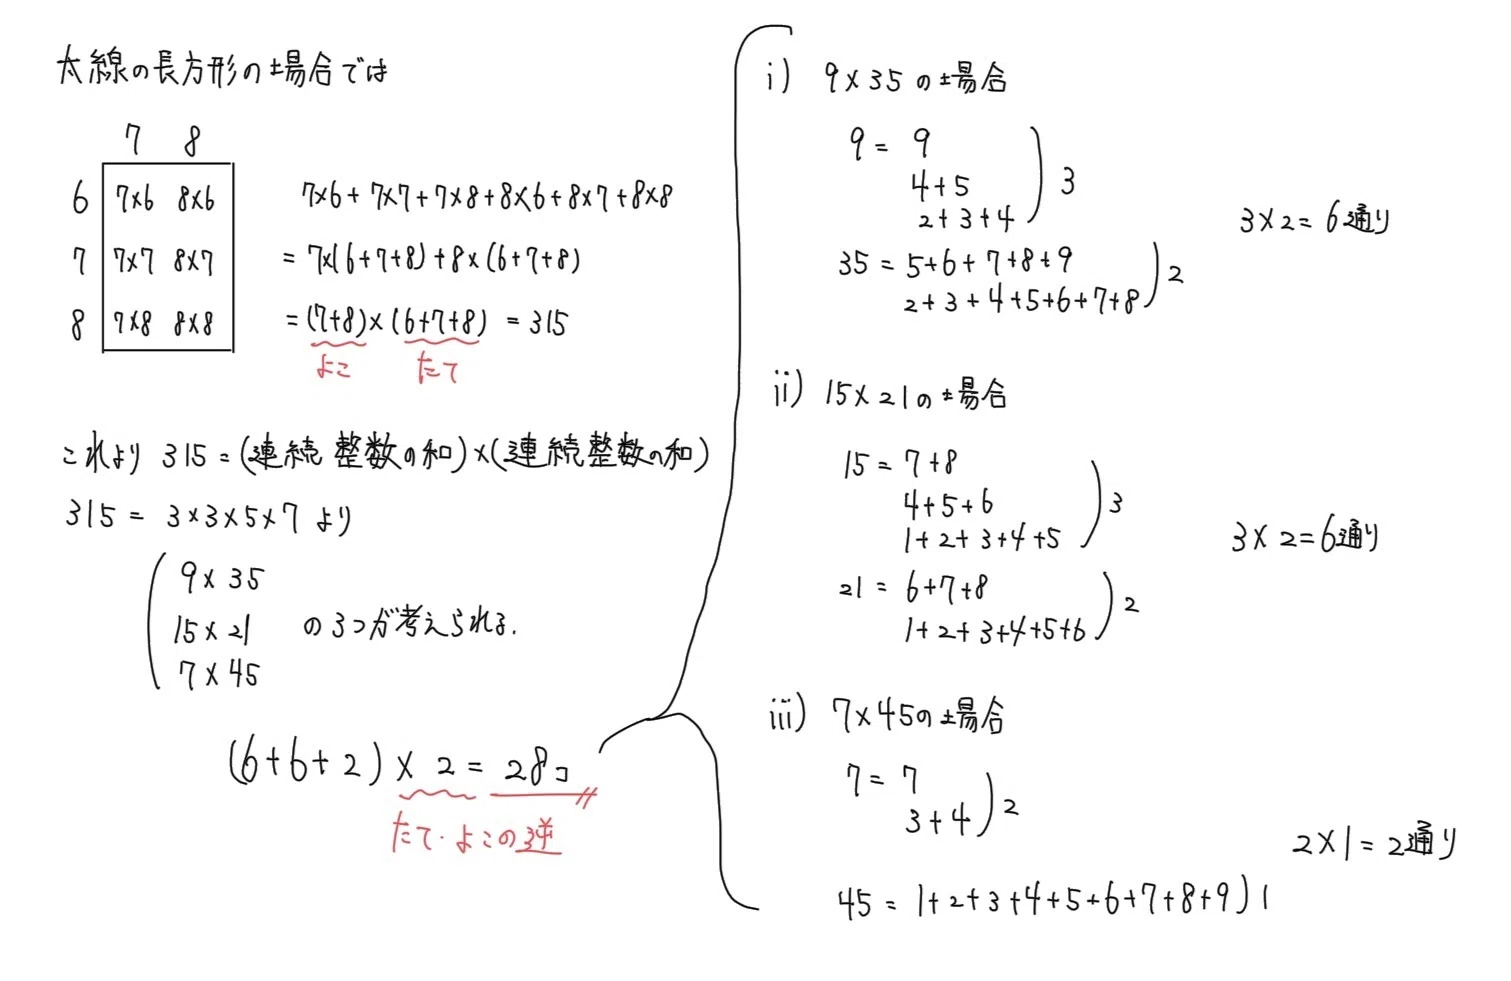 太線の長方形の場合では
7 8
6 7×6 8×6
7 7×7 8×7
8 7×8 8×8
7×6+7×7+7×8+8×6+8×7+8×8
=7×(6+7+8)+8×(6+7+8)
=(7+8)×(6+7+8)=315
よこ たて
これより 315=(連続整数の和)×(連続整数の和)
315= 3×3×5×7 より
9×35
15×21 の3つが考えられる.
7×45
(6+6+2)×2=28コ
たて・よこの逆
i) 9×35の場合
9= 9
4+5
2+3+4
3
35=5+6+7+8+9
2+3+4+5+6+7+8
2
3×2=6通り
ii) 15×21の場合
15=7+8
4+5+6
1+2+3+4+5
3
21=6+7+8
1+2+3+4+5+6
2
3×2=6通り
iii) 7×45の場合
7=7
3+4
2
45=1+2+3+4+5+6+7+8+9)1
2×1=2通り